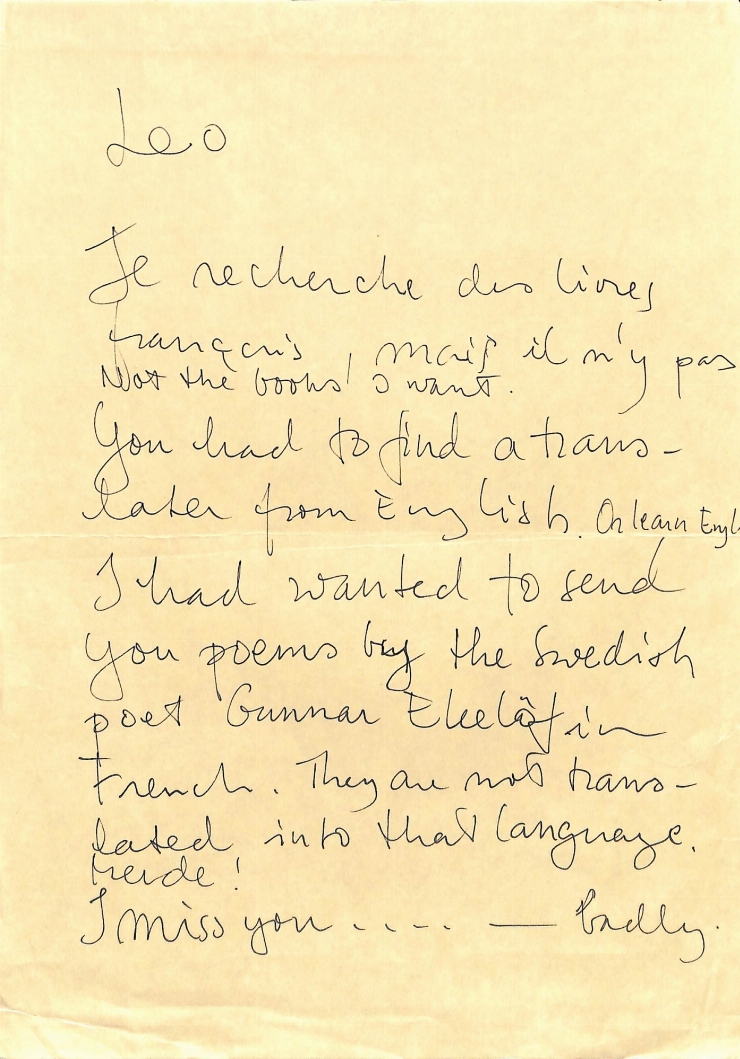 Leo
Je recherche des livres
français, mais il n'y pas
Not the books I want.
You had to find a trans-
later from English. Or learn Engl
I had wanted to send
you poems by the Swedish
poet Gunnar Ekelöf in
French. They are not trans-
lated into that language.
Merde!
I miss you ..... — badly.